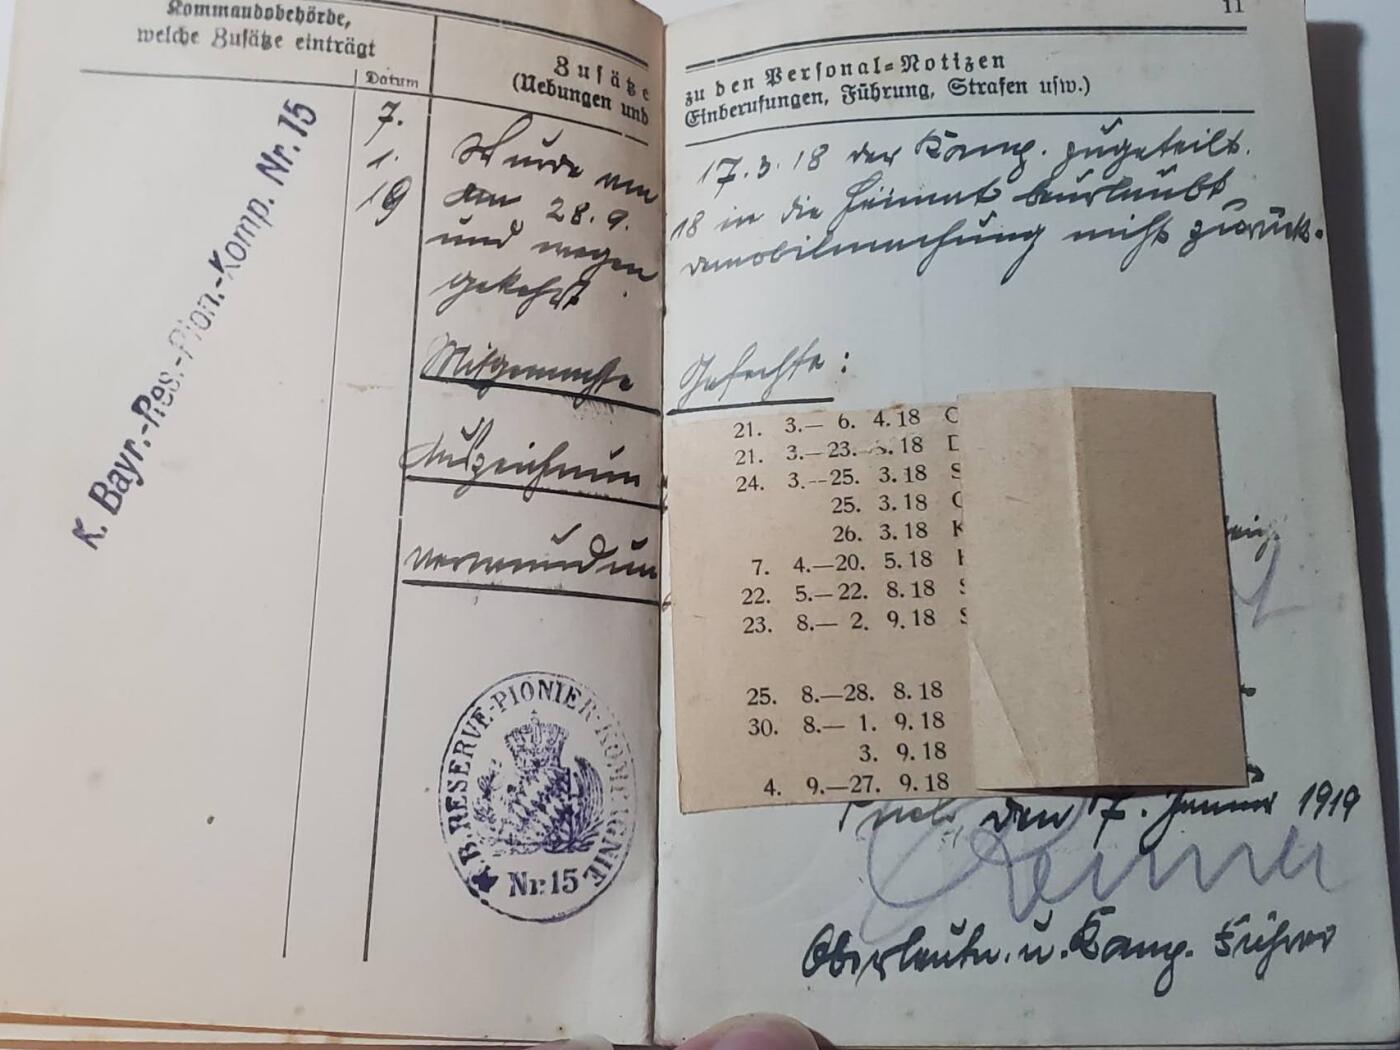 11
Kommandobehörde,
welche Zusätze einträgt
Datum
Zusätze
(Uebungen und
zu den Personal-Notizen
Einberufungen, Führung, Strafen usw.)
K. Bayr.-Res.-Pion.-Komp. Nr. 15
7.
1.
19
Wurde am 17.3.18 der Komp. zugeteilt.
Am 28.9.18 in die Heimat beurlaubt
und wegen Demobilmachung nicht zurück-
gekehrt.
Mitgemachte Gefechte:
21. 3.— 6. 4. 18
21. 3.—23. 3. 18
24. 3.—25. 3. 18
25. 3. 18
26. 3. 18
7. 4.—20. 5. 18
22. 5.—22. 8. 18
23. 8.— 2. 9. 18
25. 8.—28. 8. 18
30. 8.— 1. 9. 18
3. 9. 18
4. 9.—27. 9. 18
Auszeichnun
Verwundun
K.B. RESERVE-PIONIER-KOMPAGNIE
Nr. 15
den 7. Januar 1919
Oberleutn. u. Komp. Führer